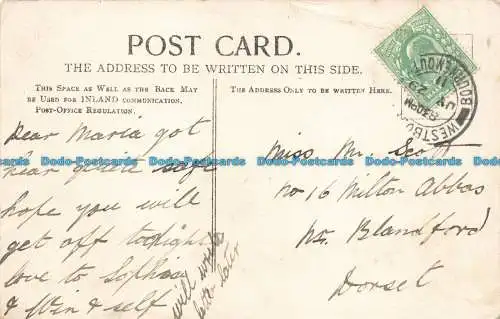 POST CARD.
THE ADDRESS TO BE WRITTEN ON THIS SIDE.
THIS SPACE AS WELL AS THE BACK MAY
BE USED FOR INLAND COMMUNICATION.
POST-OFFICE REGULATION.
THE ADDRESS ONLY TO BE WRITTEN HERE.
Dear Maria got
hear quite safe
hope you will
get off tonight
love to
& Win & self
will write
letter later
Miss M. Scott
No 16 Milton Abbas
Nr. Blandford
Dorset
BOURNEMOUTH
WESTBOURNE
8.30PM
JY 29
11
Dodo-Postcards Dodo-Postcards Dodo-Postcards Dodo-Postcards